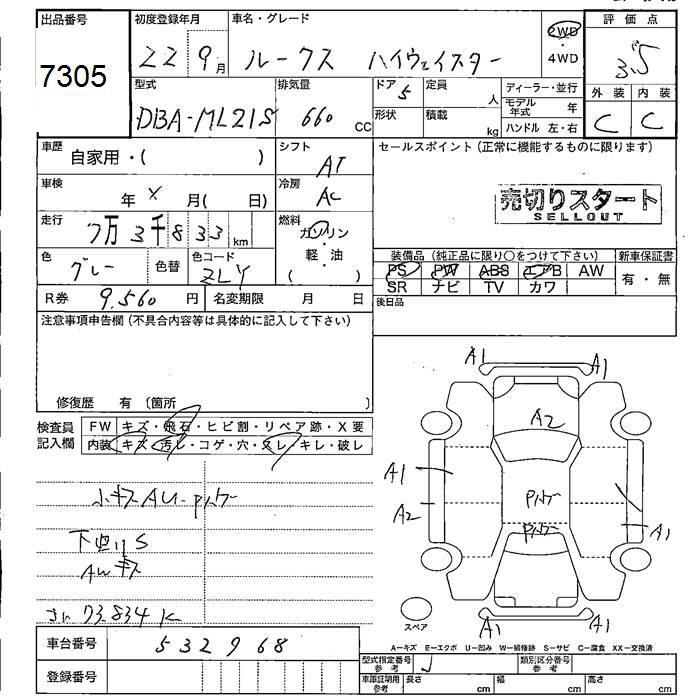 出品番号 初度登録年月 車名・グレード 2WD ・ 4WD 評価点
7305 22 9月 ルークス ハイウェイスター 3.5
型式 排気量 ドア 定員 人 ディーラー・並行 外装 内装
DBA-ML21S 660 CC 5 形状 積載 kg モデル年式 年 C C
ハンドル 左・右
車歴 自家用・( ) シフト AT セールスポイント(正常に機能するものに限ります)
車検 年 X 月( 日) 冷房 AC 売切りスタート
SELLOUT
走行 7万3千833km 燃料 ガソリン・軽油( )
色 グレー 色替 色コード ZLY
装備品(純正品に限り○をつけて下さい) 新車保証書
PS PW ABS エアB AW 有・無
SR ナビ TV カワ
R券 9,560円 名変期限 月 日 後日品
注意事項申告欄(不具合内容等は具体的に記入して下さい)
修復歴 有 〔箇所 〕
検査員記入欄 FW キズ・飛石・ヒビ割・リペア跡・X要
内装 キズ・汚レ・コゲ・穴・スレ・キレ・破レ
小キズAU
下廻りS
AWキズ
73,834K
A1 A1
A2
A1
A2
A1
A1 A1
スペア
A-キズ E-エクボ U-凹み W-補修跡 S-サビ C-腐食 XX-交換済
車台番号 532968
型式指定番号 参考 類別区分番号 参考
登録番号
車庫証明用 参考 長さ cm 幅 cm 高さ cm